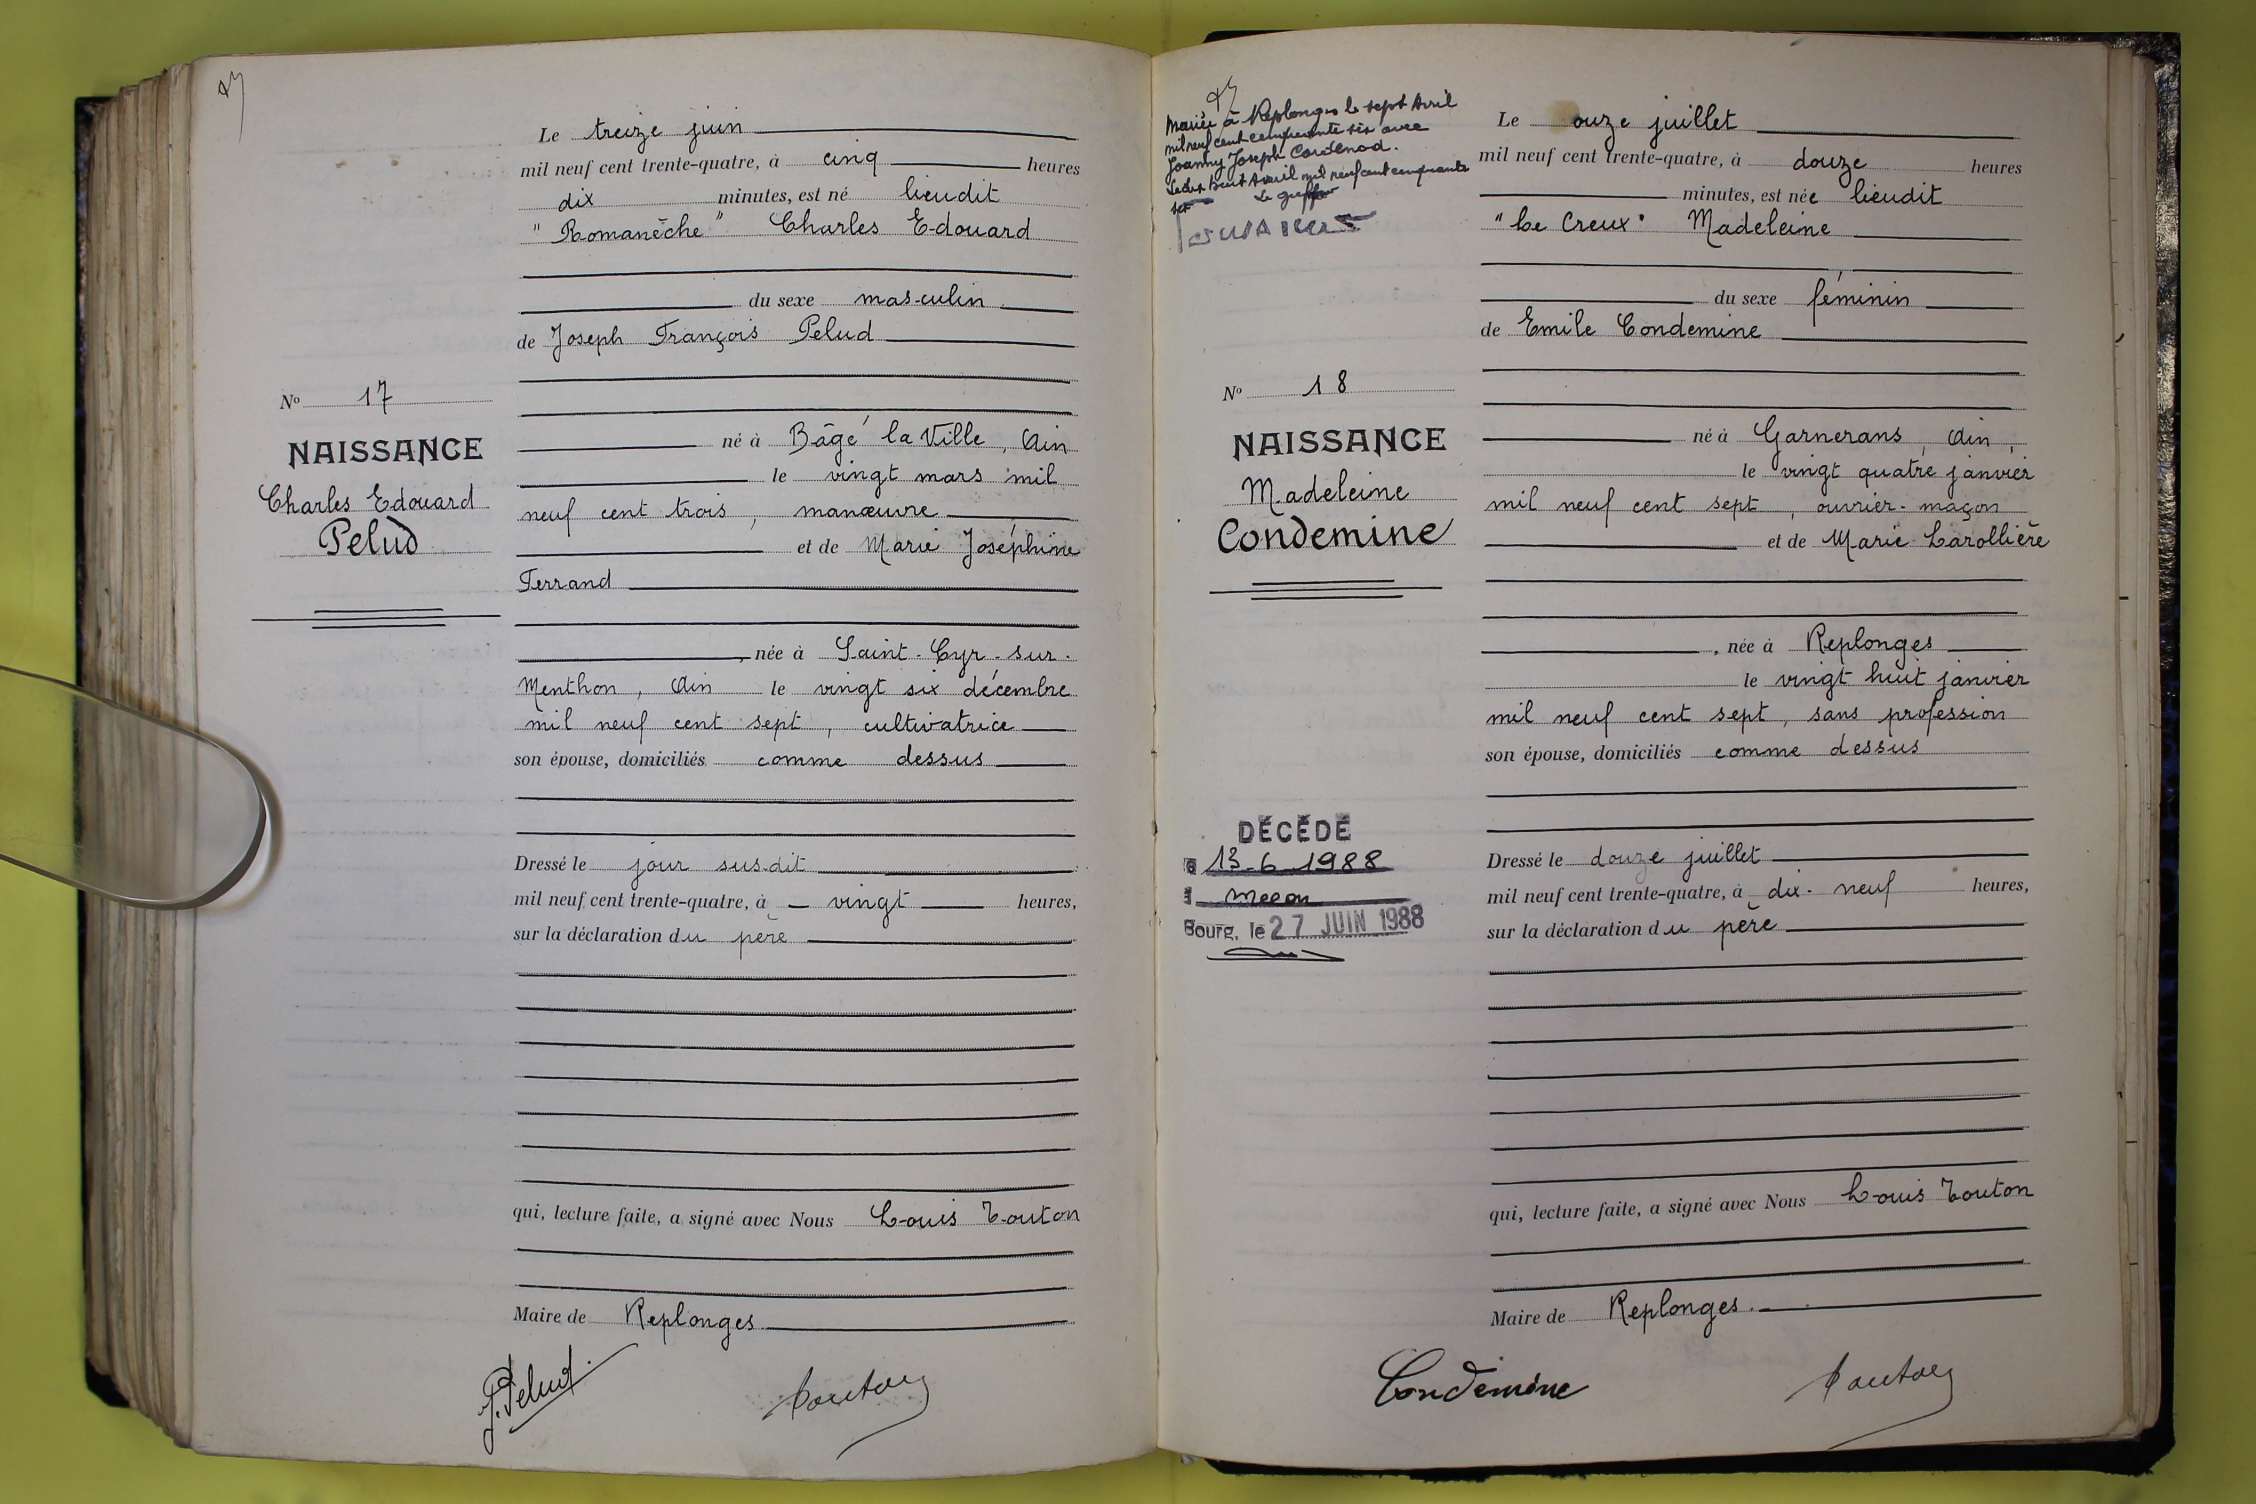 Le treize juin
mil neuf cent trente-quatre, à cinq heures
dix minutes, est né lieudit
"Romanèche" Charles Edouard
du sexe masculin
de Joseph François Pelud
né à Bâgé la Ville, Ain
le vingt mars mil
neuf cent trois, manœuvre
et de Marie Joséphine
Ferrand
, née à Saint-Cyr-sur-
Menthon, Ain le vingt six décembre
mil neuf cent sept, cultivatrice
son épouse, domiciliés comme dessus
Dressé le jour sus-dit
mil neuf cent trente-quatre, à vingt heures,
sur la déclaration du père
qui, lecture faite, a signé avec Nous Louis Touton
Maire de Replonges
J. Pelud
Touton
No 17
NAISSANCE
Charles Edouard
Pelud
Mariée à Replonges le sept Avril
mil neuf cent cinquante six avec
Joanny Joseph
huit Avril mil neuf cent cinquante
six Le greffier
No 18
NAISSANCE
Madeleine
Condemine
DÉCÉDÉ
13-6-1988
Bourg, le 27 JUIN 1988
Le onze juillet
mil neuf cent trente-quatre, à douze heures
minutes, est née lieudit
"Le Creux" Madeleine
du sexe féminin
de Emile Condemine
né à Garnerans, Ain,
le vingt quatre janvier
mil neuf cent sept, ouvrier-maçon
et de Marie Larollière
, née à Replonges
le vingt huit janvier
mil neuf cent sept, sans profession
son épouse, domiciliés comme dessus
Dressé le douze juillet
mil neuf cent trente-quatre, à dix-neuf heures,
sur la déclaration du père
qui, lecture faite, a signé avec Nous Louis Touton
Maire de Replonges.
Condemine
Touton